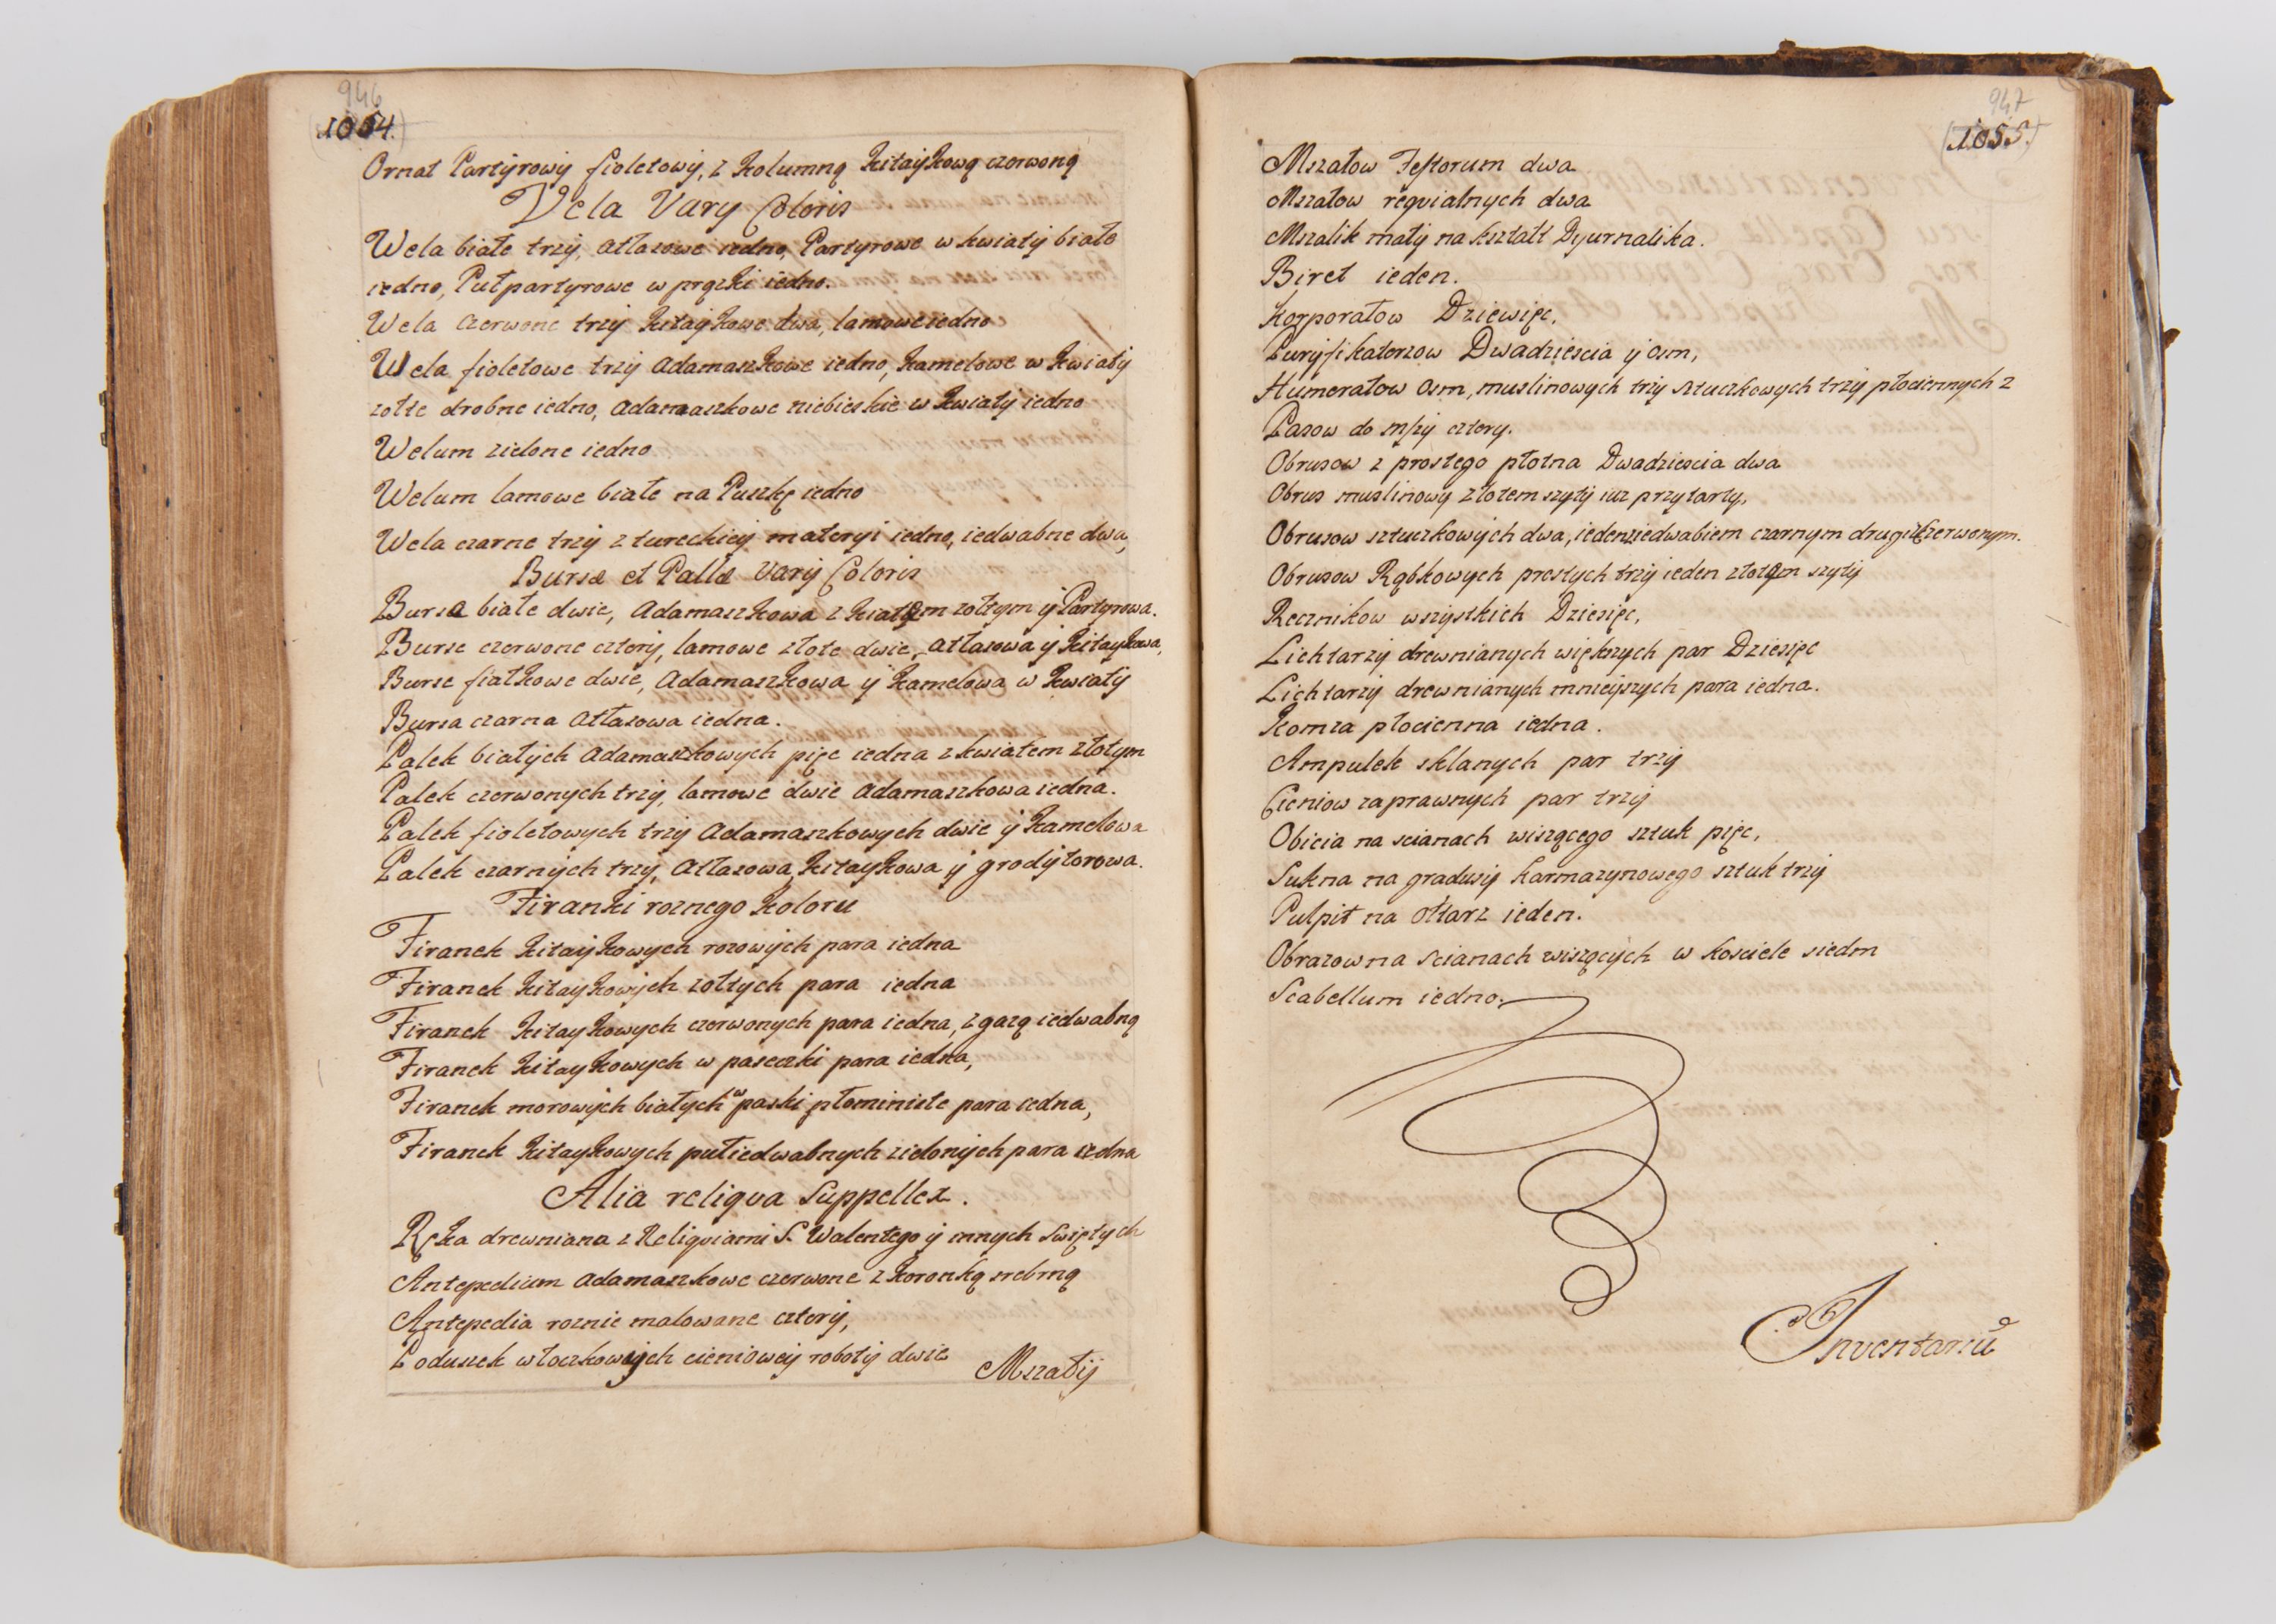 946
1054.
Ornat Partyrowy fioletowy, z kolumną kitaykową czerwoną
Vela Vary Coloris
Wela białe trzy, atlasowe iedno, Partyrowe w kwiaty białe
iedno, Pułpartyrowe w prązki iedno.
Wela czerwone trzy kitaykowe dwa, lamowe iedno
Wela fioletowe trzy adamaszkowe iedno, kamelowe w kwiaty
zołte drobne iedno, adamaszkowe niebieskie w kwiaty iedno
Welum zielone iedno
Welum lamowe białe na Puszkę iedno
Wela czarne trzy z tureckiey materyi iedno, iedwabne dwa,
Bursæ et Pallæ Vary Coloris
Bursa białe dwie, adamaszkowa z kwiatem zołtym y Partyrowa.
Burse czerwone cztery, lamowe złote dwie, atlasowa y kitaykowa,
Burse fiałkowe dwie, adamaszkowa y kamelowa w kwiaty
Bursa czarna atłasowa iedna.
Palek białych adamaszkowych pięc iedna z kwiatem złotym
Palek czerwonych trzy, lamowe dwie adamaszkowa iedna.
Palek fioletowych trzy adamaszkowych dwie y kamelowa
Palek czarnych trzy, atlasowa, kitaykowa y grodytorowa.
Firanki roznego koloru
Firanek kitaykowych rozowych para iedna
Firanek kitaykowych zołtych para iedna
Firanek kitaykowych czerwonych para iedna, z gazą iedwabną
Firanek kitaykowych w paseczki para iedna,
Firanek morowych białych w paski płoministe para iedna,
Firanek kitaykowych pułiedwabnych zielonych para iedna
Alia reliqva Suppellex.
Ręka drewniana z Reliqviami S. Walentego y innych Swiętych
Antepedium adamaszkowe czerwone z koronką srebrną
Antepedia roznie malowane cztery,
Poduszek włoczkowych cieniowey roboty dwie
Mszały
947
1055.
Mszałow Festorum dwa
Mszałow reqvialnych dwa
Mszalik mały na kształt Dyurnalika.
Biret ieden.
Korporałow Dziewięc,
Puryfikaterzow Dwadziescia y osm,
Humerałow osm, muslinowych trzy sztuczkowych trzy płociennych 2
Pasow do mszy cztery.
Obrusow z prostego płotna Dwadziescia dwa
Obrus muslinowy złotem szyty iuz przytarty,
Obrusow sztuczkowych dwa, ieden z iedwabiem czarnym drugi z czerwonym.
Obrusow Rąbkowych prostych trzy ieden złotem szyty
Ręcznikow wszystkich Dziesięc,
Lichtarzy drewnianych większych par Dziesięc
Lichtarzy drewnianych mnieyszych para iedna.
Komza płocienna iedna.
Ampulek sklanych par trzy
Cieniow zaprawnych par trzy
Obicia na scianach wiszącego sztuk pięc,
Sukna na gradusy karmazynowego sztuk trzy
Pulpit na ołtarz ieden.
Obrazow na scianach wiszących w kosciele siedm
Scabellum iedno.
Inventariũ